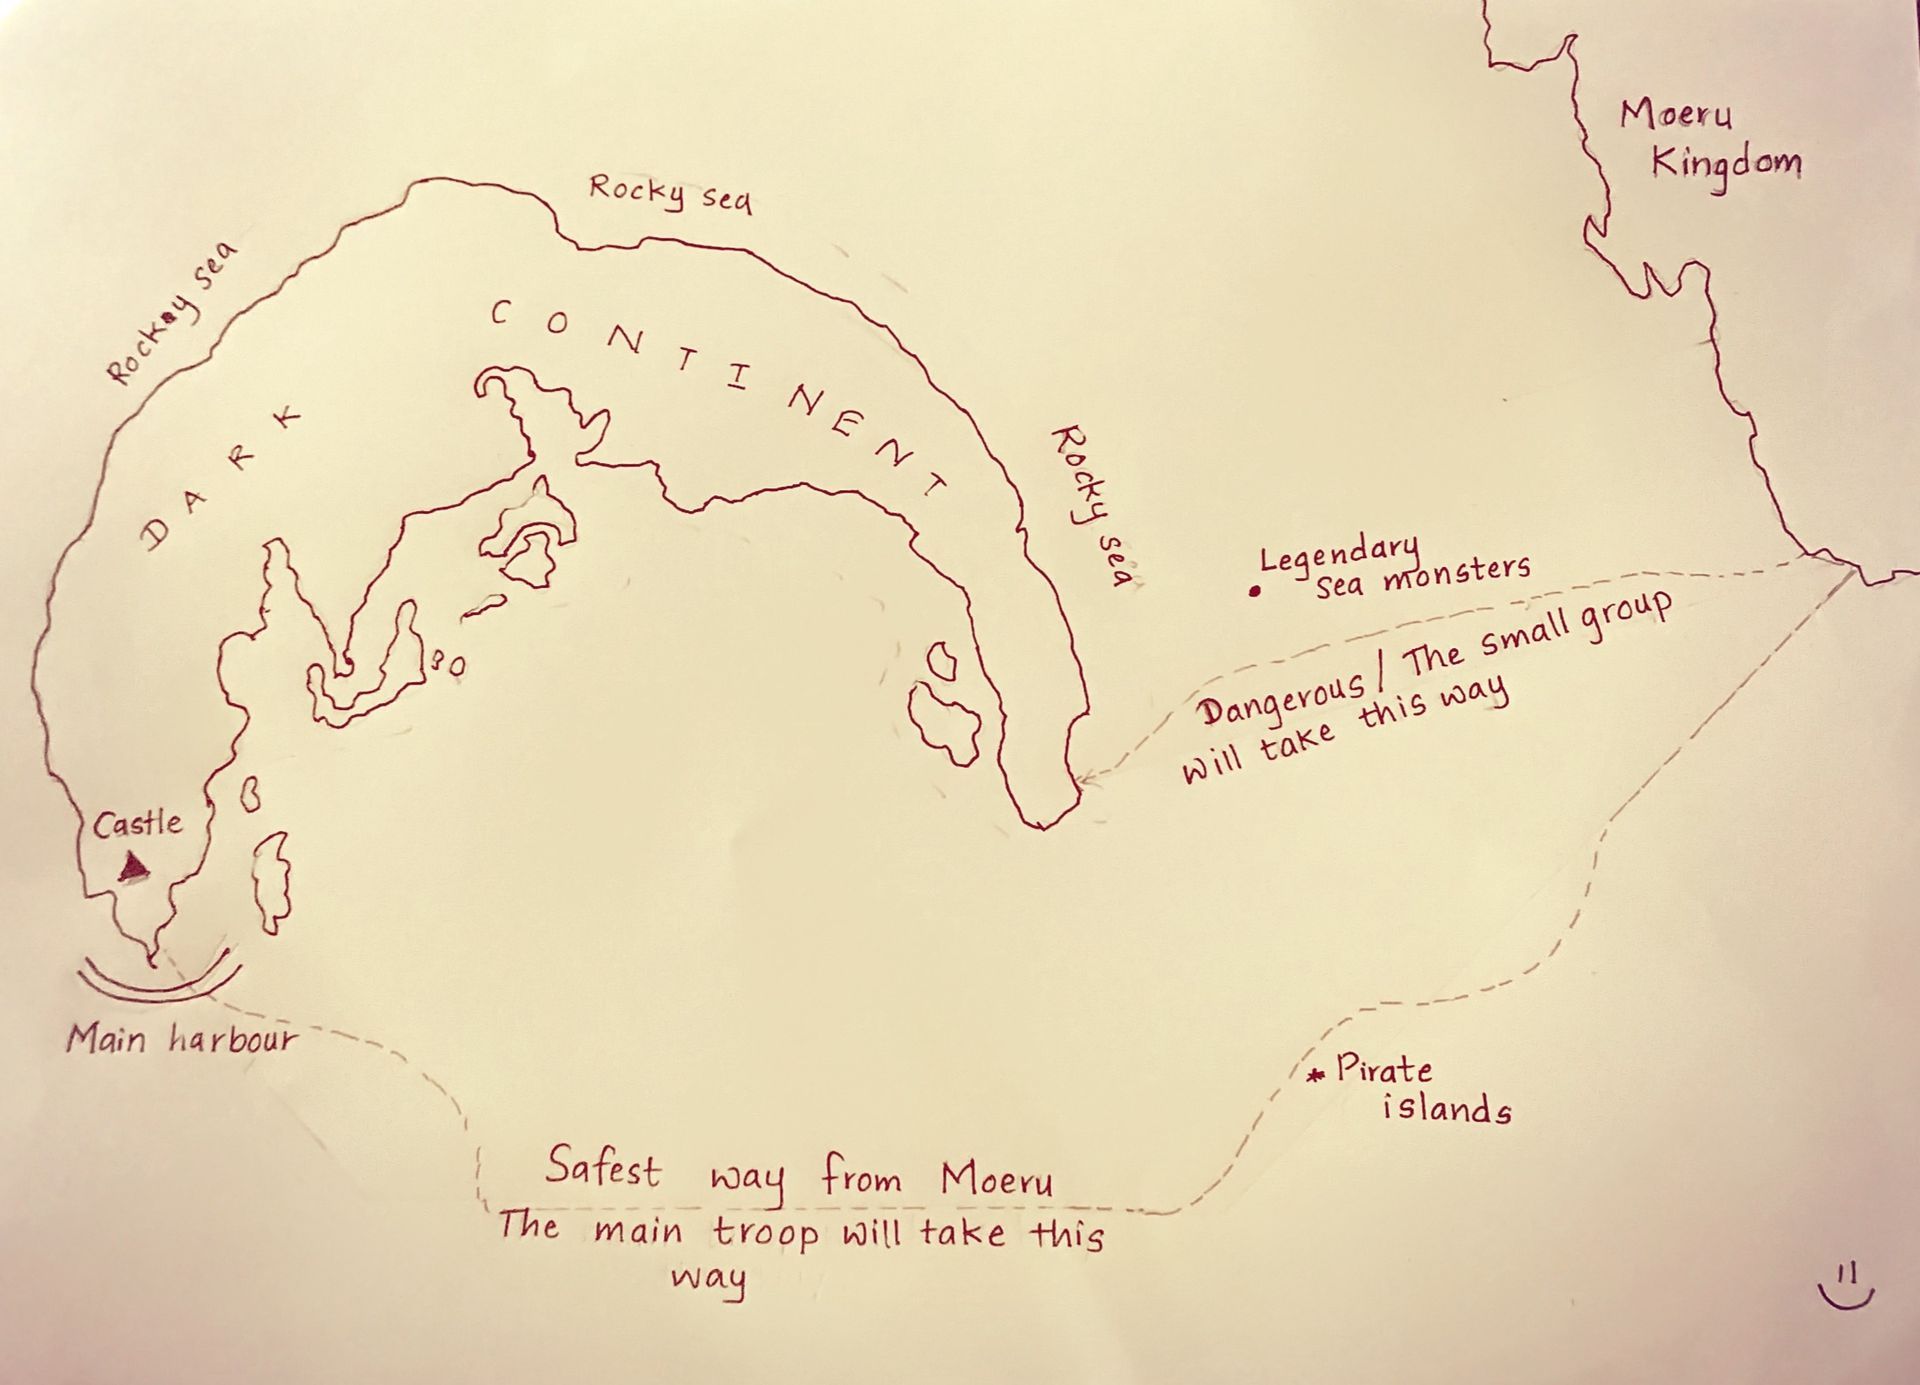 Moeru
Kingdom
Rocky sea
Rockay sea
CONTINENT
DARK
Rocky sea
Legendary
sea monsters
Dangerous / The small group
will take this way
Castle
Main harbour
Pirate
islands
Safest way from Moeru
The main troop will take this
way